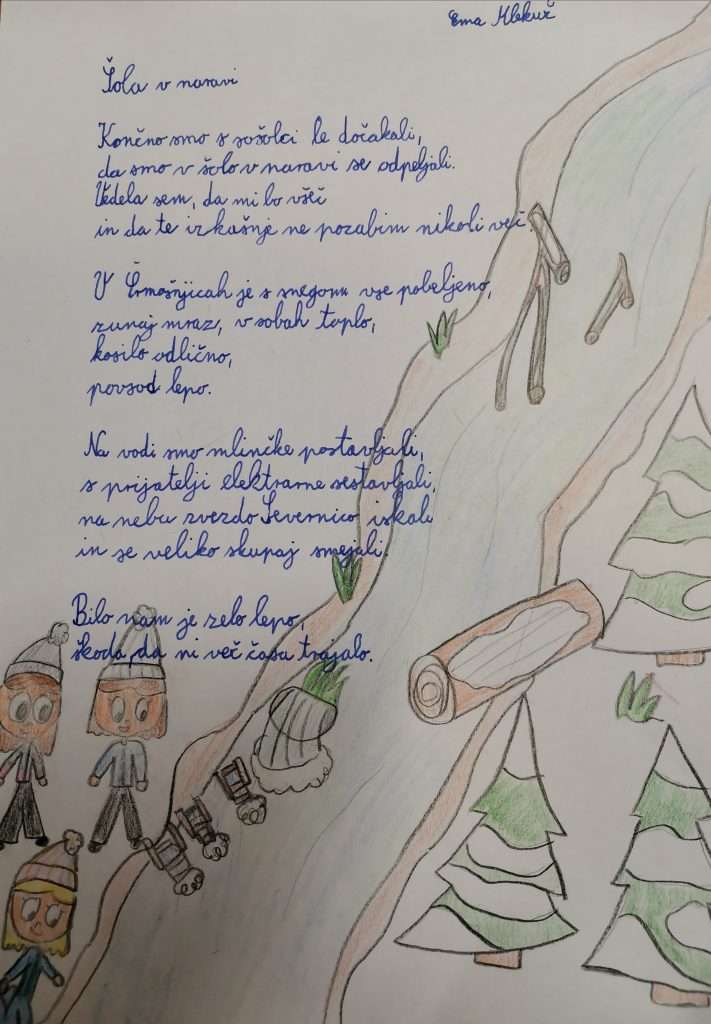 Ema Mlekuž
Šola v naravi
Končno smo s sošolci le dočakali,
da smo v šolo v naravi se odpeljali.
Vedela sem, da mi bo všeč
in da te izkušnje ne pozabim nikoli več.
V Črmošnjicah je s snegom vse pobeljeno,
zunaj mraz, v sobah toplo,
kosilo odlično,
povsod lepo.
Na vodi smo mlinčke postavljali,
s prijatelji elektrarne sestavljali,
na nebu zvezdo Severnico iskali
in se veliko skupaj smejali.
Bilo nam je zelo lepo,
škoda, da ni več časa trajalo.